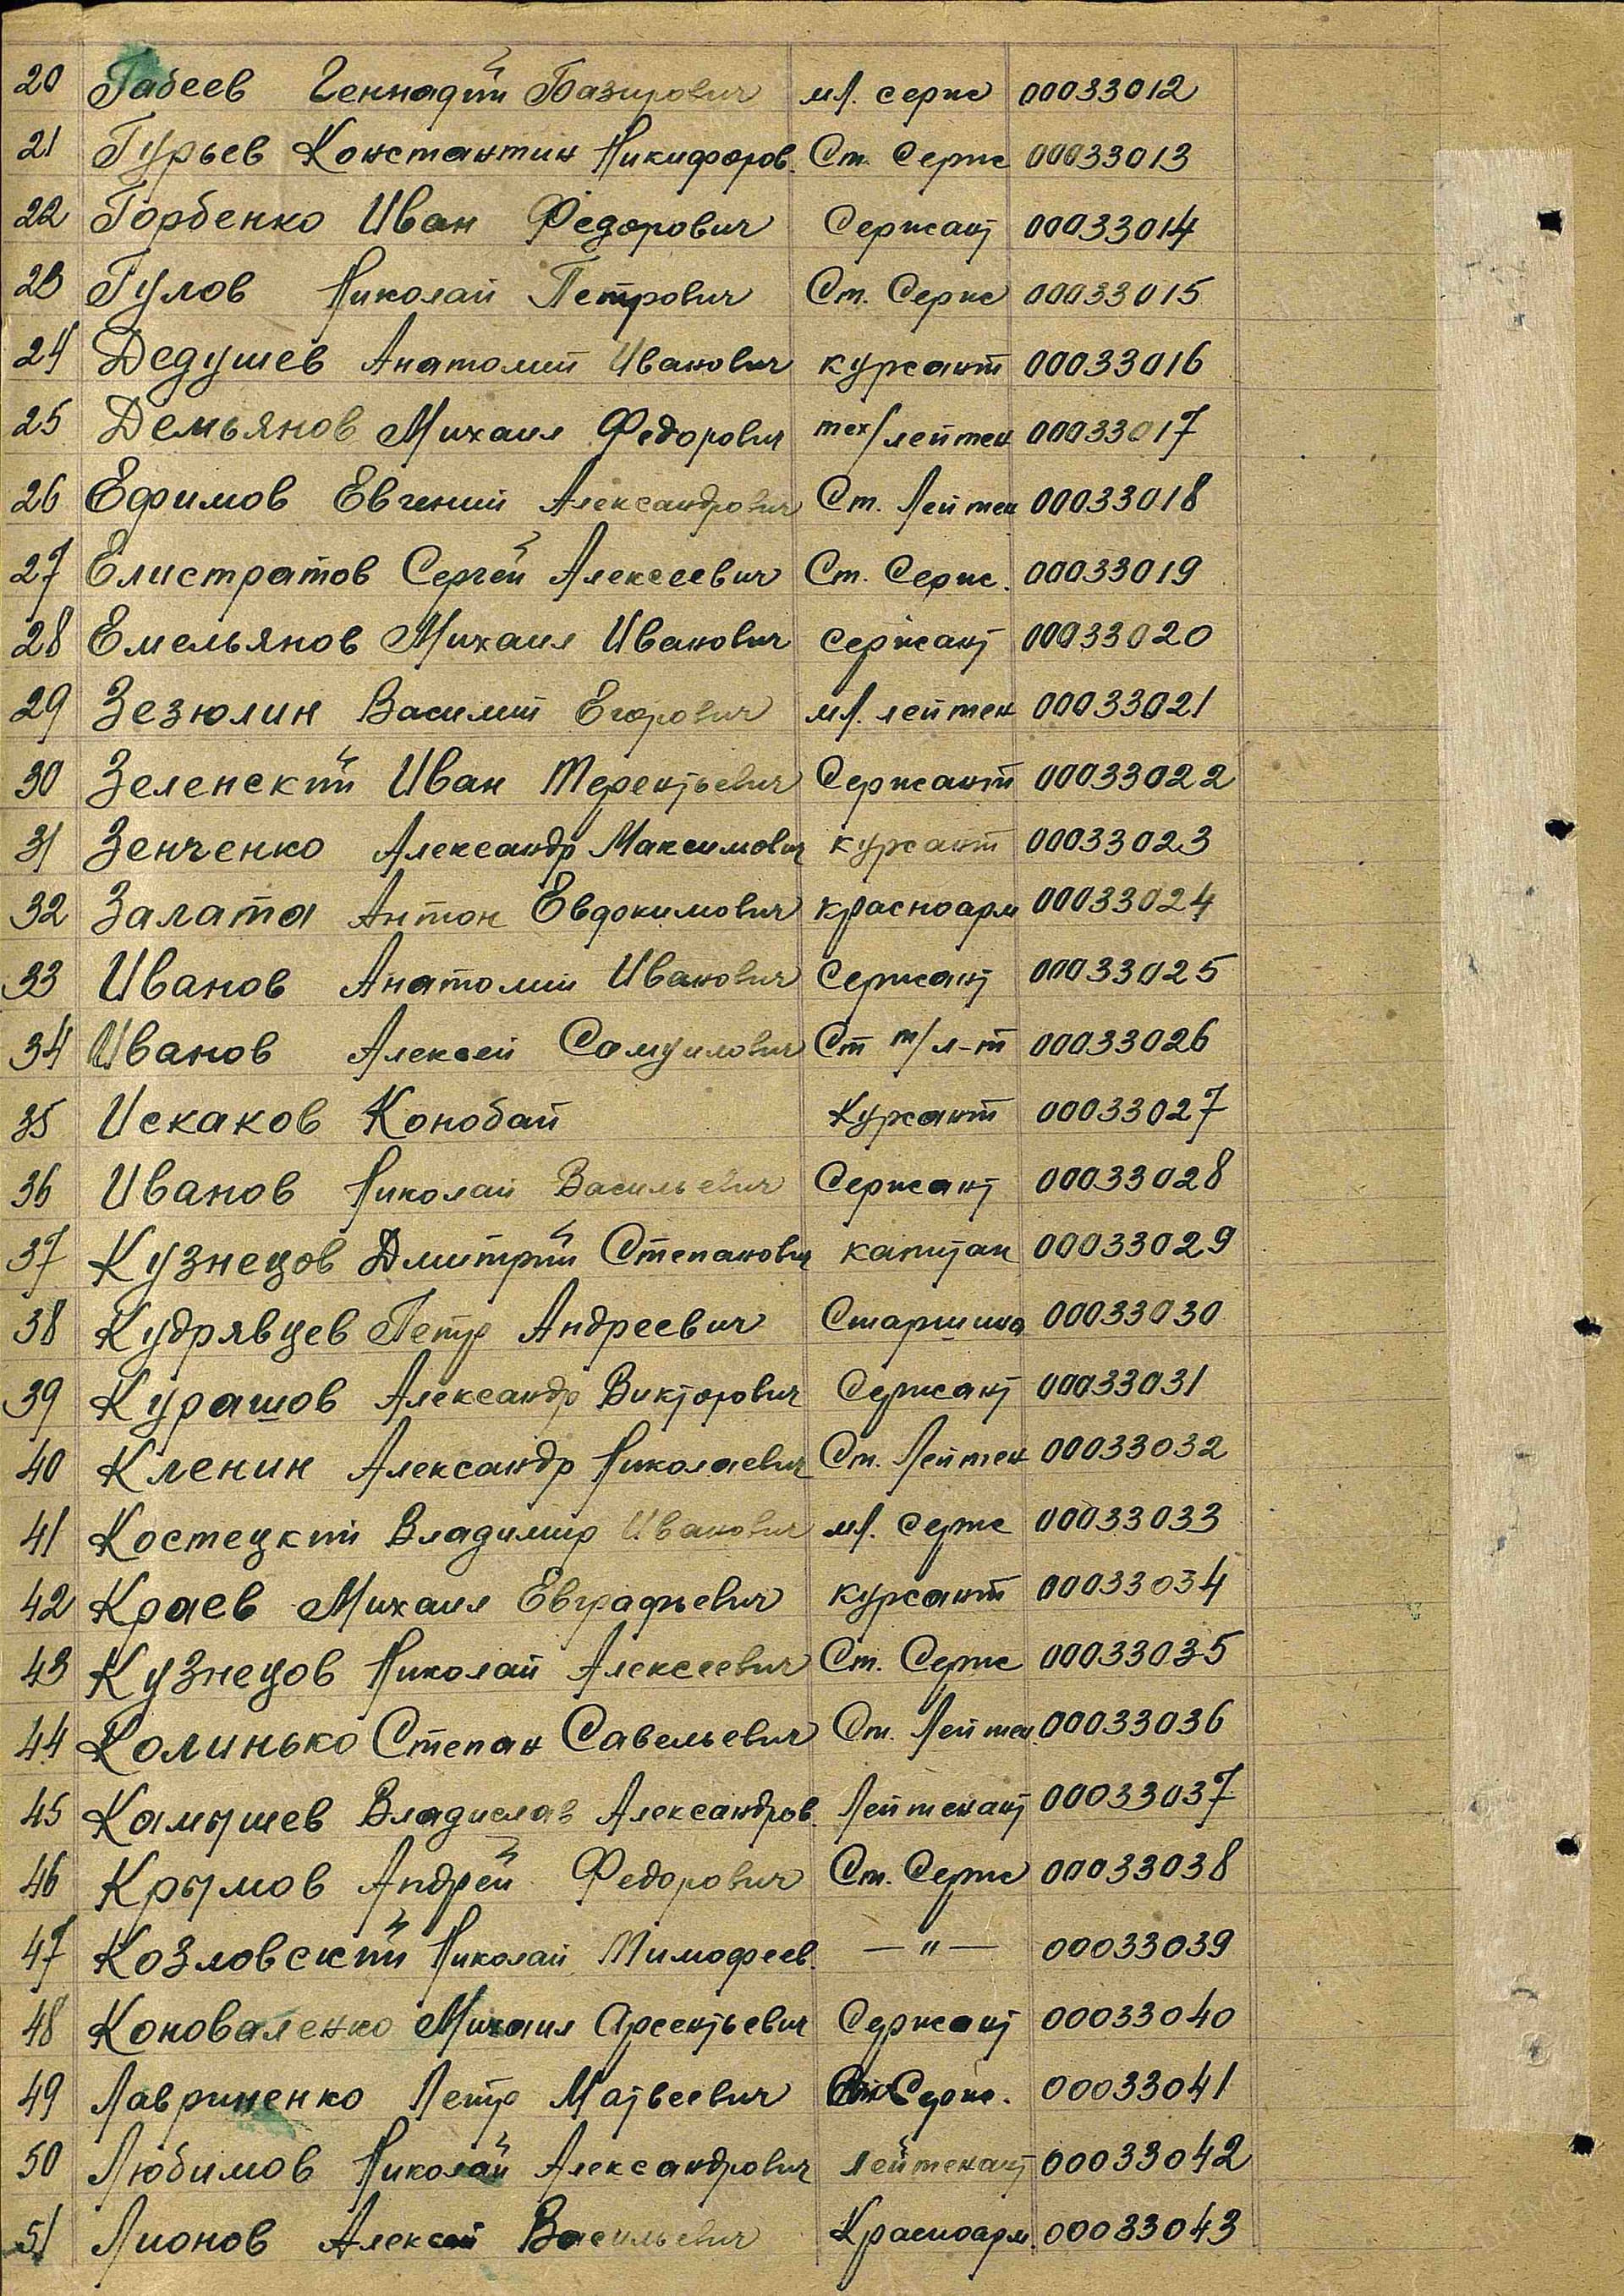 20 Габеев Геннадий Базирович мл. серж 00033012
21 Гурьев Константин Никифоров. Ст. Серж 00033013
22 Горбенко Иван Федорович Сержант 00033014
23 Гулов Николай Петрович Ст. Серж 00033015
24 Дедушев Анатолий Иванович курсант 00033016
25 Демьянов Михаил Федорович тех/лейтен 00033017
26 Ефимов Евгений Александрович Ст. Лейтен 00033018
27 Елистратов Сергей Алексеевич Ст. Серж. 00033019
28 Емельянов Михаил Иванович сержант 00033020
29 Зезюлин Василий Егорович мл. лейтен 00033021
30 Зеленский Иван Терентьевич Сержант 00033022
31 Зенченко Александр Максимович курсант 00033023
32 Залата Антон Евдокимович красноарм 00033024
33 Иванов Анатолий Иванович Сержант 00033025
34 Иванов Алексей Самуилович Ст т/л-т 00033026
35 Искаков Конобай Курсант 00033027
36 Иванов Николай Васильевич Сержант 00033028
37 Кузнецов Дмитрий Степанович капитан 00033029
38 Кудрявцев Петр Андреевич Старшина 00033030
39 Курашов Александр Викторович Сержант 00033031
40 Кленин Александр Николаевич Ст. Лейтен 00033032
41 Костецкий Владимир Иванович мл. серж 00033033
42 Краев Михаил Евграфьевич курсант 00033034
43 Кузнецов Николай Алексеевич Ст. Серж 00033035
44 Колинько Степан Савельевич Ст. Лейтен. 00033036
45 Камышев Владислав Александров. Лейтенант 00033037
46 Крымов Андрей Федорович Ст. Серж 00033038
47 Козловский Николай Тимофеев. — " — 00033039
48 Коноваленко Михаил Арсентьевич Сержант 00033040
49 Лавриненко Петр Матвеевич Серж. 00033041
50 Любимов Николай Александрович лейтенант 00033042
51 Лионов Алексей Васильевич Красноарм. 00033043